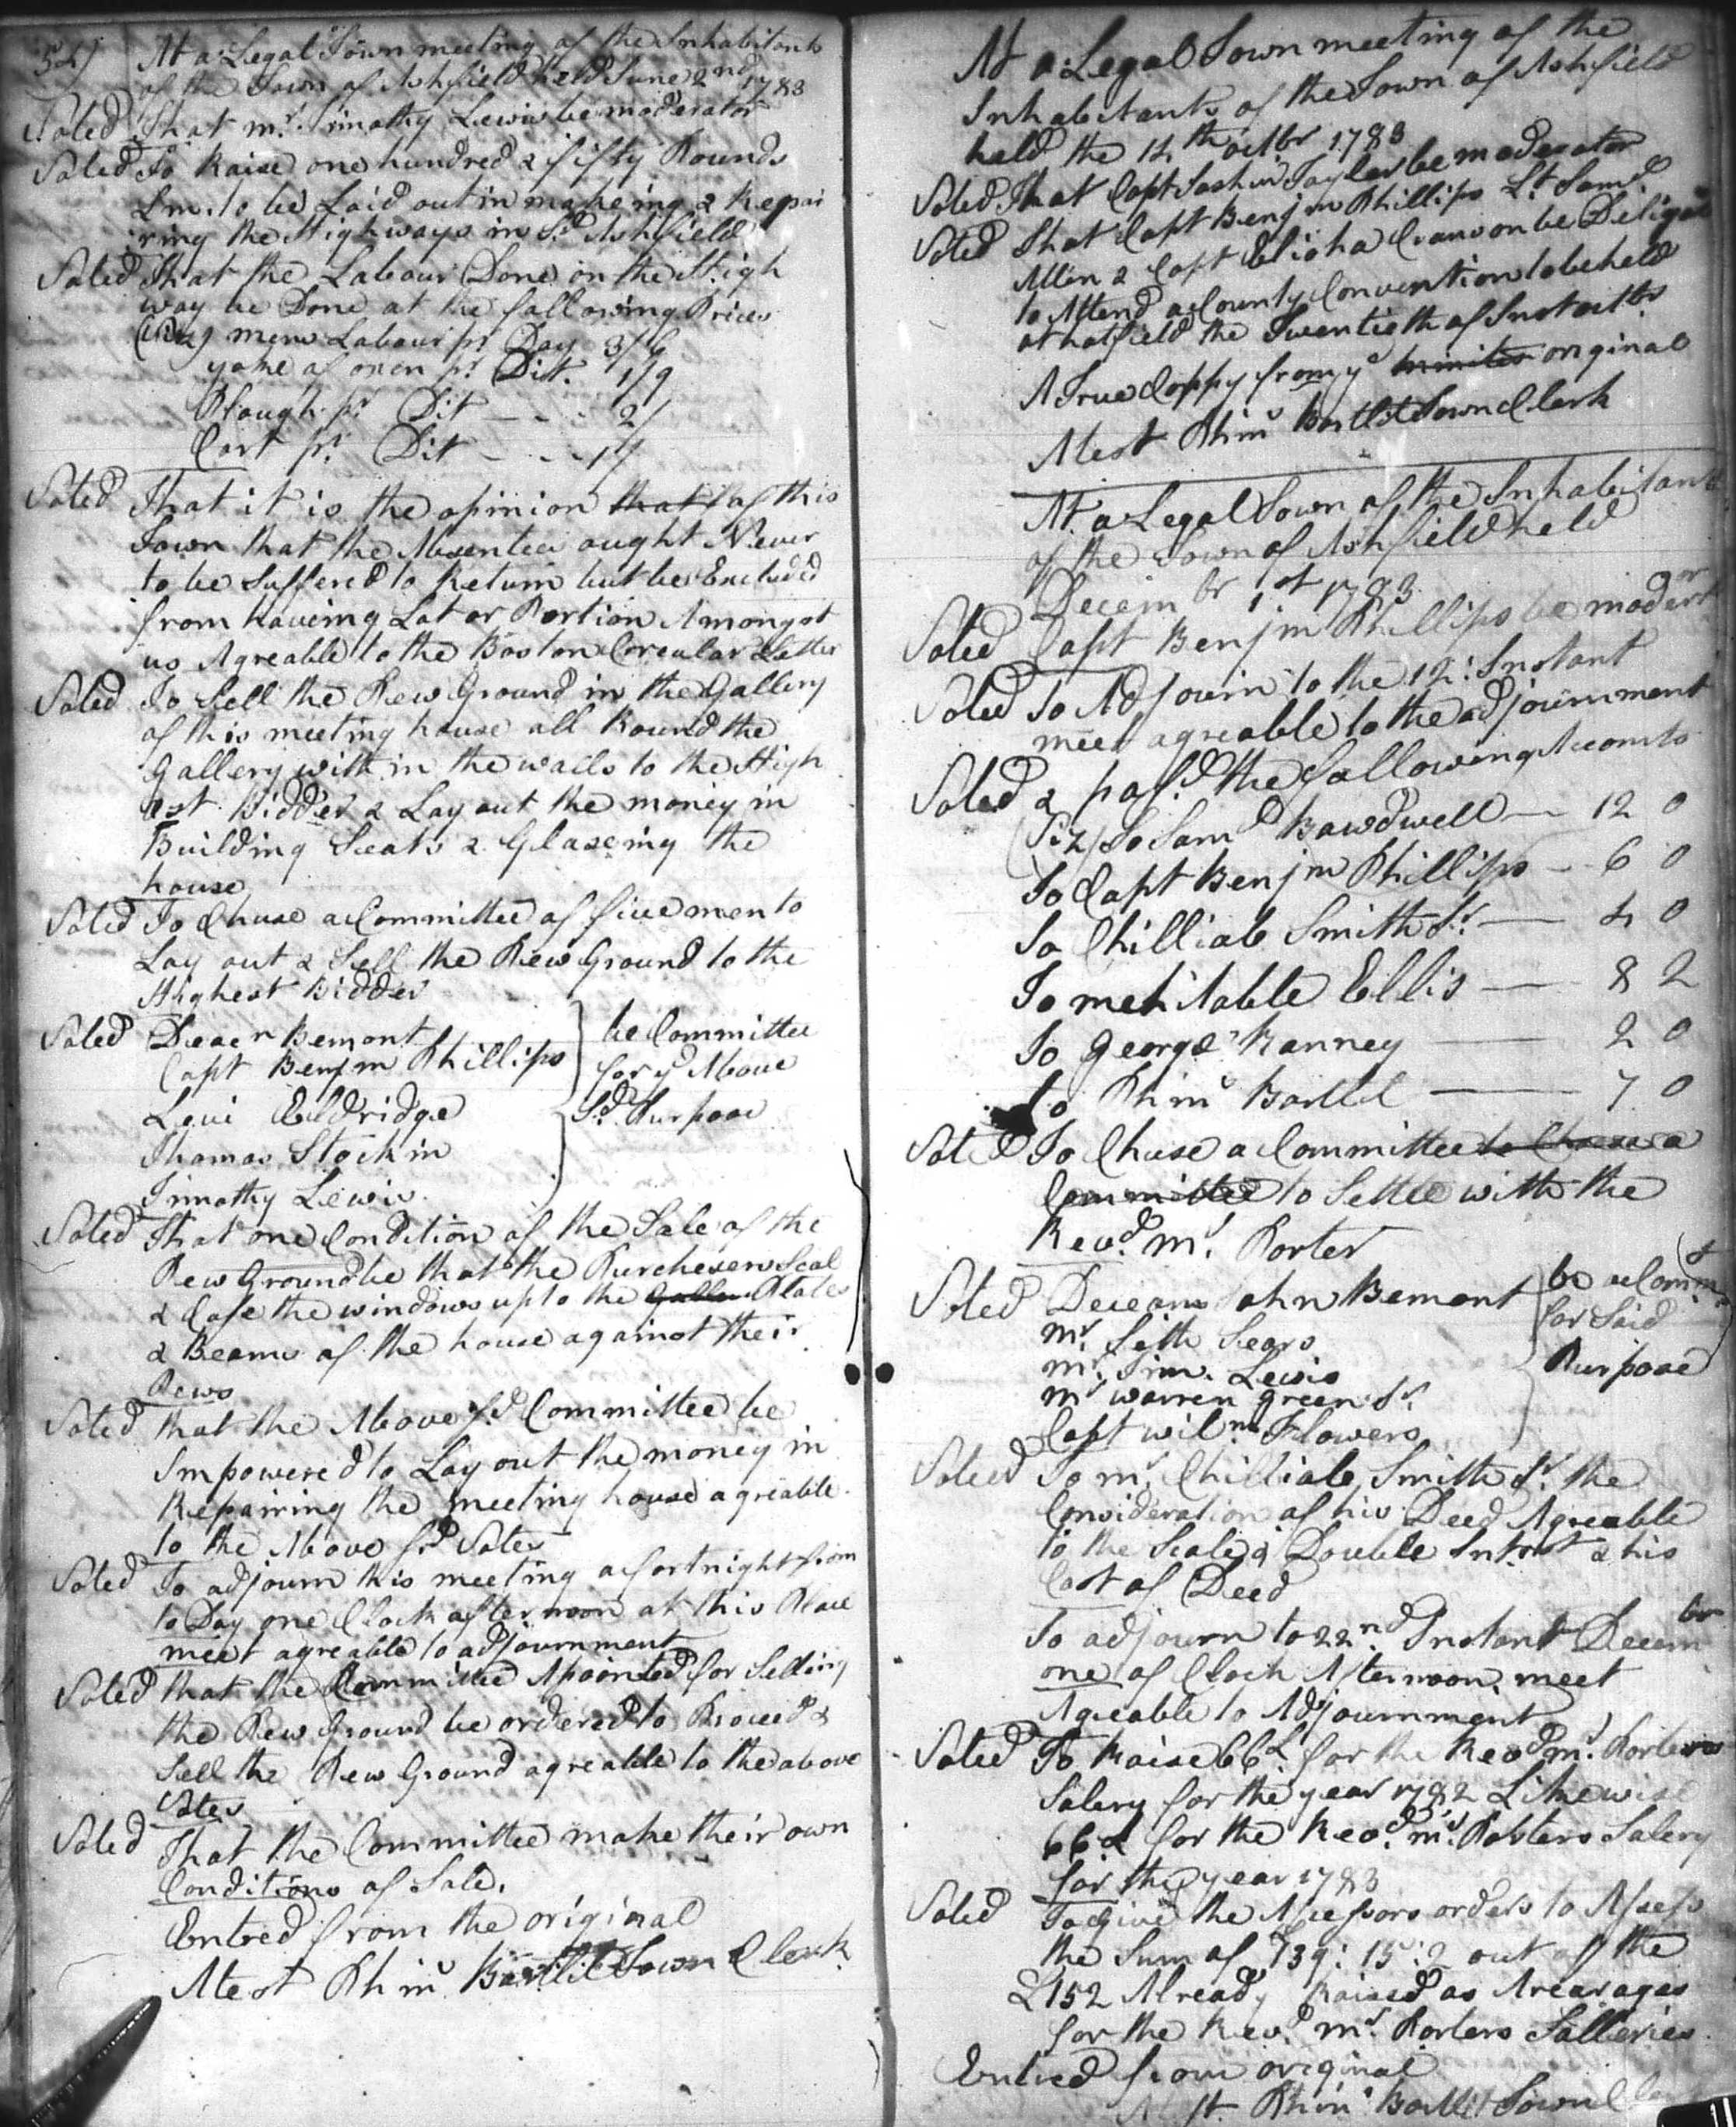 At a Legal Town meeting of the Inhabitants
of the Town of Ashfield held June 2nd 1783
Voted That mr. Timothy Lewis be moderator
Voted To Raise one hundred & fifty Pounds
Lm. to be Laid out in makeing & Repai
ring the Highways in Sd Ashfield
Voted That the Labour Done on the High
way be Done at the following Prices
(viz) mens Labour pr Day 3/6
yoke of oxen pr. Dit. 1/9
Plough pr Dit - - - 2/
Cart pr. Dit - - - 1/
Voted That it is the opinion that of this
Town that the Absentees ought Never
to be Suffered to Return but be Excluded
from haveing Lot or Portion Amongst
us Agreable to the Boston Circular Letter
Voted To Sell the Pew Ground in the Gallery
of this meeting house all Round the
Gallery with in the walls to the High
est Bidder & Lay out the money in
Building Seats & Glaseing the
house
Voted To Chuse a Committee of five men to
Lay out & Sell the Pew Ground to the
Highest Bidder
Voted Deacn Bemont
Capt Benjm Phillips
Levi Eldridge
Thomas Stockin
Timothy Lewis
be Committee
for ye Above
Sd. Purpose
Voted That one Condition of the Sale of the
Pew Ground be that the Purchesers Seal
& Case the windows up to the Plates
& Beams of the house against their
Pews
Voted that the Above Sd Committee be
Impowered to Lay out the money in
Repairing the meeting house agreable
to the Above Sd Votes
Voted To adjourn this meeting a fortnight from
to Day one Clock afternoon at this Place
meet agreable to adjournment
Voted that the Committee Apointed for Selling
the Pew Ground be ordered to Proceed &
Sell the Pew Ground agreable to the above
Votes
Voted That the Committee make their own
Conditions of Sale.
Entred from the original
Atest Phinˢ Bartlit Town Clerk
At a Legal Town meeting of the
Inhabitants of the Town of Ashfield
held the 14th octbr 1783
Voted That Capt Lashur Taylor be moderator
Voted That Capt Benjm Phillips Lt Samd
Allin & Capt Elisha Cranson be Deligats
to Attend a County Convention to be held
at hatfield the Twentieth of Inst octbr
A True Coppy from ye minites original
Atest Phinˢ Bartlit Town Clerk
At a Legal Town of the Inhabitants
of the Town of Ashfield held
Decembr 1st 1783
Voted Capt Benjm Phillips be moderator
Voted To Adjourn to the 12: Instant
meet agreable to the adjournment
Voted & pased the following Accompts
(Viz) To Samd Bawdwell — 12 0
To Capt Benjm Phillips — 6 0
To Chilliab Smith Sr. — 4 0
To mehitable Ellis — 8 2
To George Ranney — 2 0
To Phinˢ Bartlit — 7 0
Voted To Chuse a Committee to Choose a
Committee to Settle with the
Revd. mr. Porter
Voted Deacon John Bemont
mr. Seth Sears
mr. Tim. Lewis
mr warren Green Sr.
Capt wilm Flowers
be a Commt
for Said
Purpose
Voted To mr. Chilliab Smith Sr. the
Consideration of his Deed Agreable
to the Scale & Double Intrest & his
Cost of Deed
To adjourn to 22nd. Instant Decembr
one of Clock Afternoon, meet
Agreable to Adjournment
Voted To Raise 66£ for the Revd mr. Porters
Salery for the year 1782 Likewise
66£ for the Revd. mr. Porters Salery
for the year 1783
Voted To give the Assessors orders to Assess
the Sum of 139: 15: 2 out of the
£152 Already Raised as Arearages
for the Revd. mr. Porters Salleries
Entred from original
Atest Phinˢ Bartlit Town Clerk